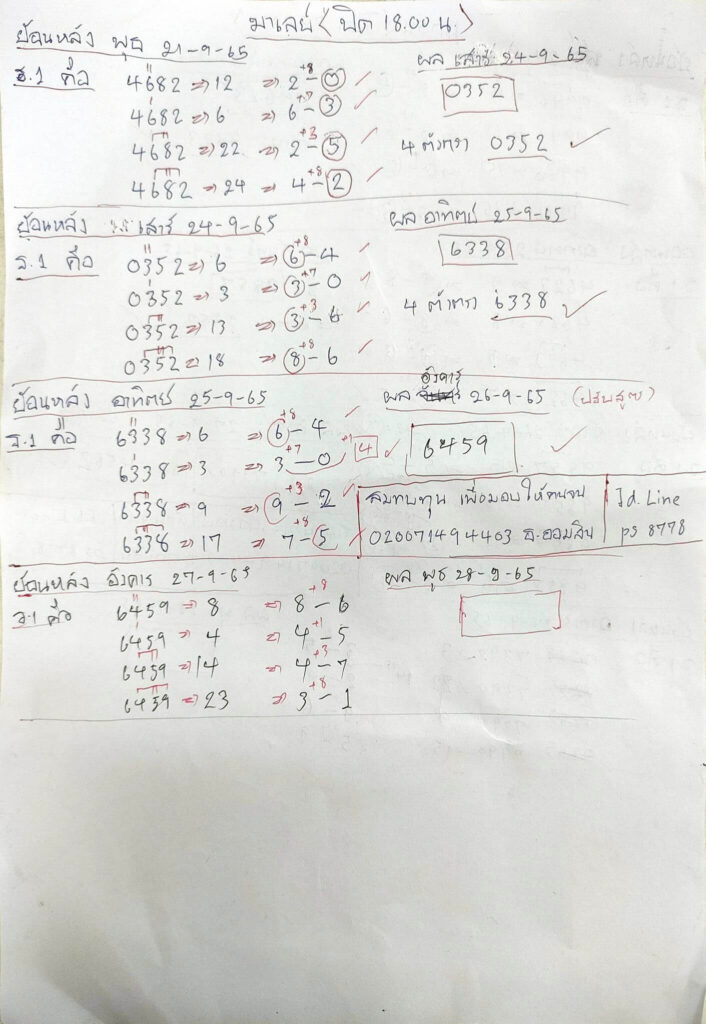 มาเลย์ (ปิด 18.00 น.)
ย้อนหลัง พุธ 21-9-65
ผล เสาร์ 24-9-65
ร.1 คือ 4682 => 12 => 2 +8 – 0 ✓
0352
4682 => 6 => 6 +7 – 3 ✓
4682 => 22 => 2 +3 – 5 ✓
4 ตัวตรง 0352 ✓
4682 => 24 => 4 +8 – 2 ✓
ย้อนหลัง เสาร์ 24-9-65
ผล อาทิตย์ 25-9-65
ร.1 คือ 0352 => 6 => 6 +8 – 4 ✓
6338
0352 => 3 => 3 +7 – 0 ✓
4 ตัวตรง 6338 ✓
0352 => 13 => 3 +3 – 6 ✓
0352 => 18 => 8 +8 – 6 ✓
ย้อนหลัง อาทิตย์ 25-9-65
ผล อังคาร 26-9-65 (ปรับสูตร)
ร.1 คือ 6338 => 6 => 6 +8 – 4 ✓
6459 ✓
6338 => 3 => 3 +7 – 0 +1 4 ✓
6338 => 9 => 9 +3 – 2 ✓
สมทบทุน เพื่อมอบให้คนจน
Id. Line
6338 => 17 => 7 +8 – 5 ✓
020071494403 ธ.ออมสิน
ps 8778
ย้อนหลัง อังคาร 27-9-65
ผล พุธ 28-9-65
ร.1 คือ 6459 => 8 => 8 +8 – 6
6459 => 4 => 4 +1 – 5
6459 => 14 => 4 +3 – 7
6459 => 23 => 3 +8 – 1